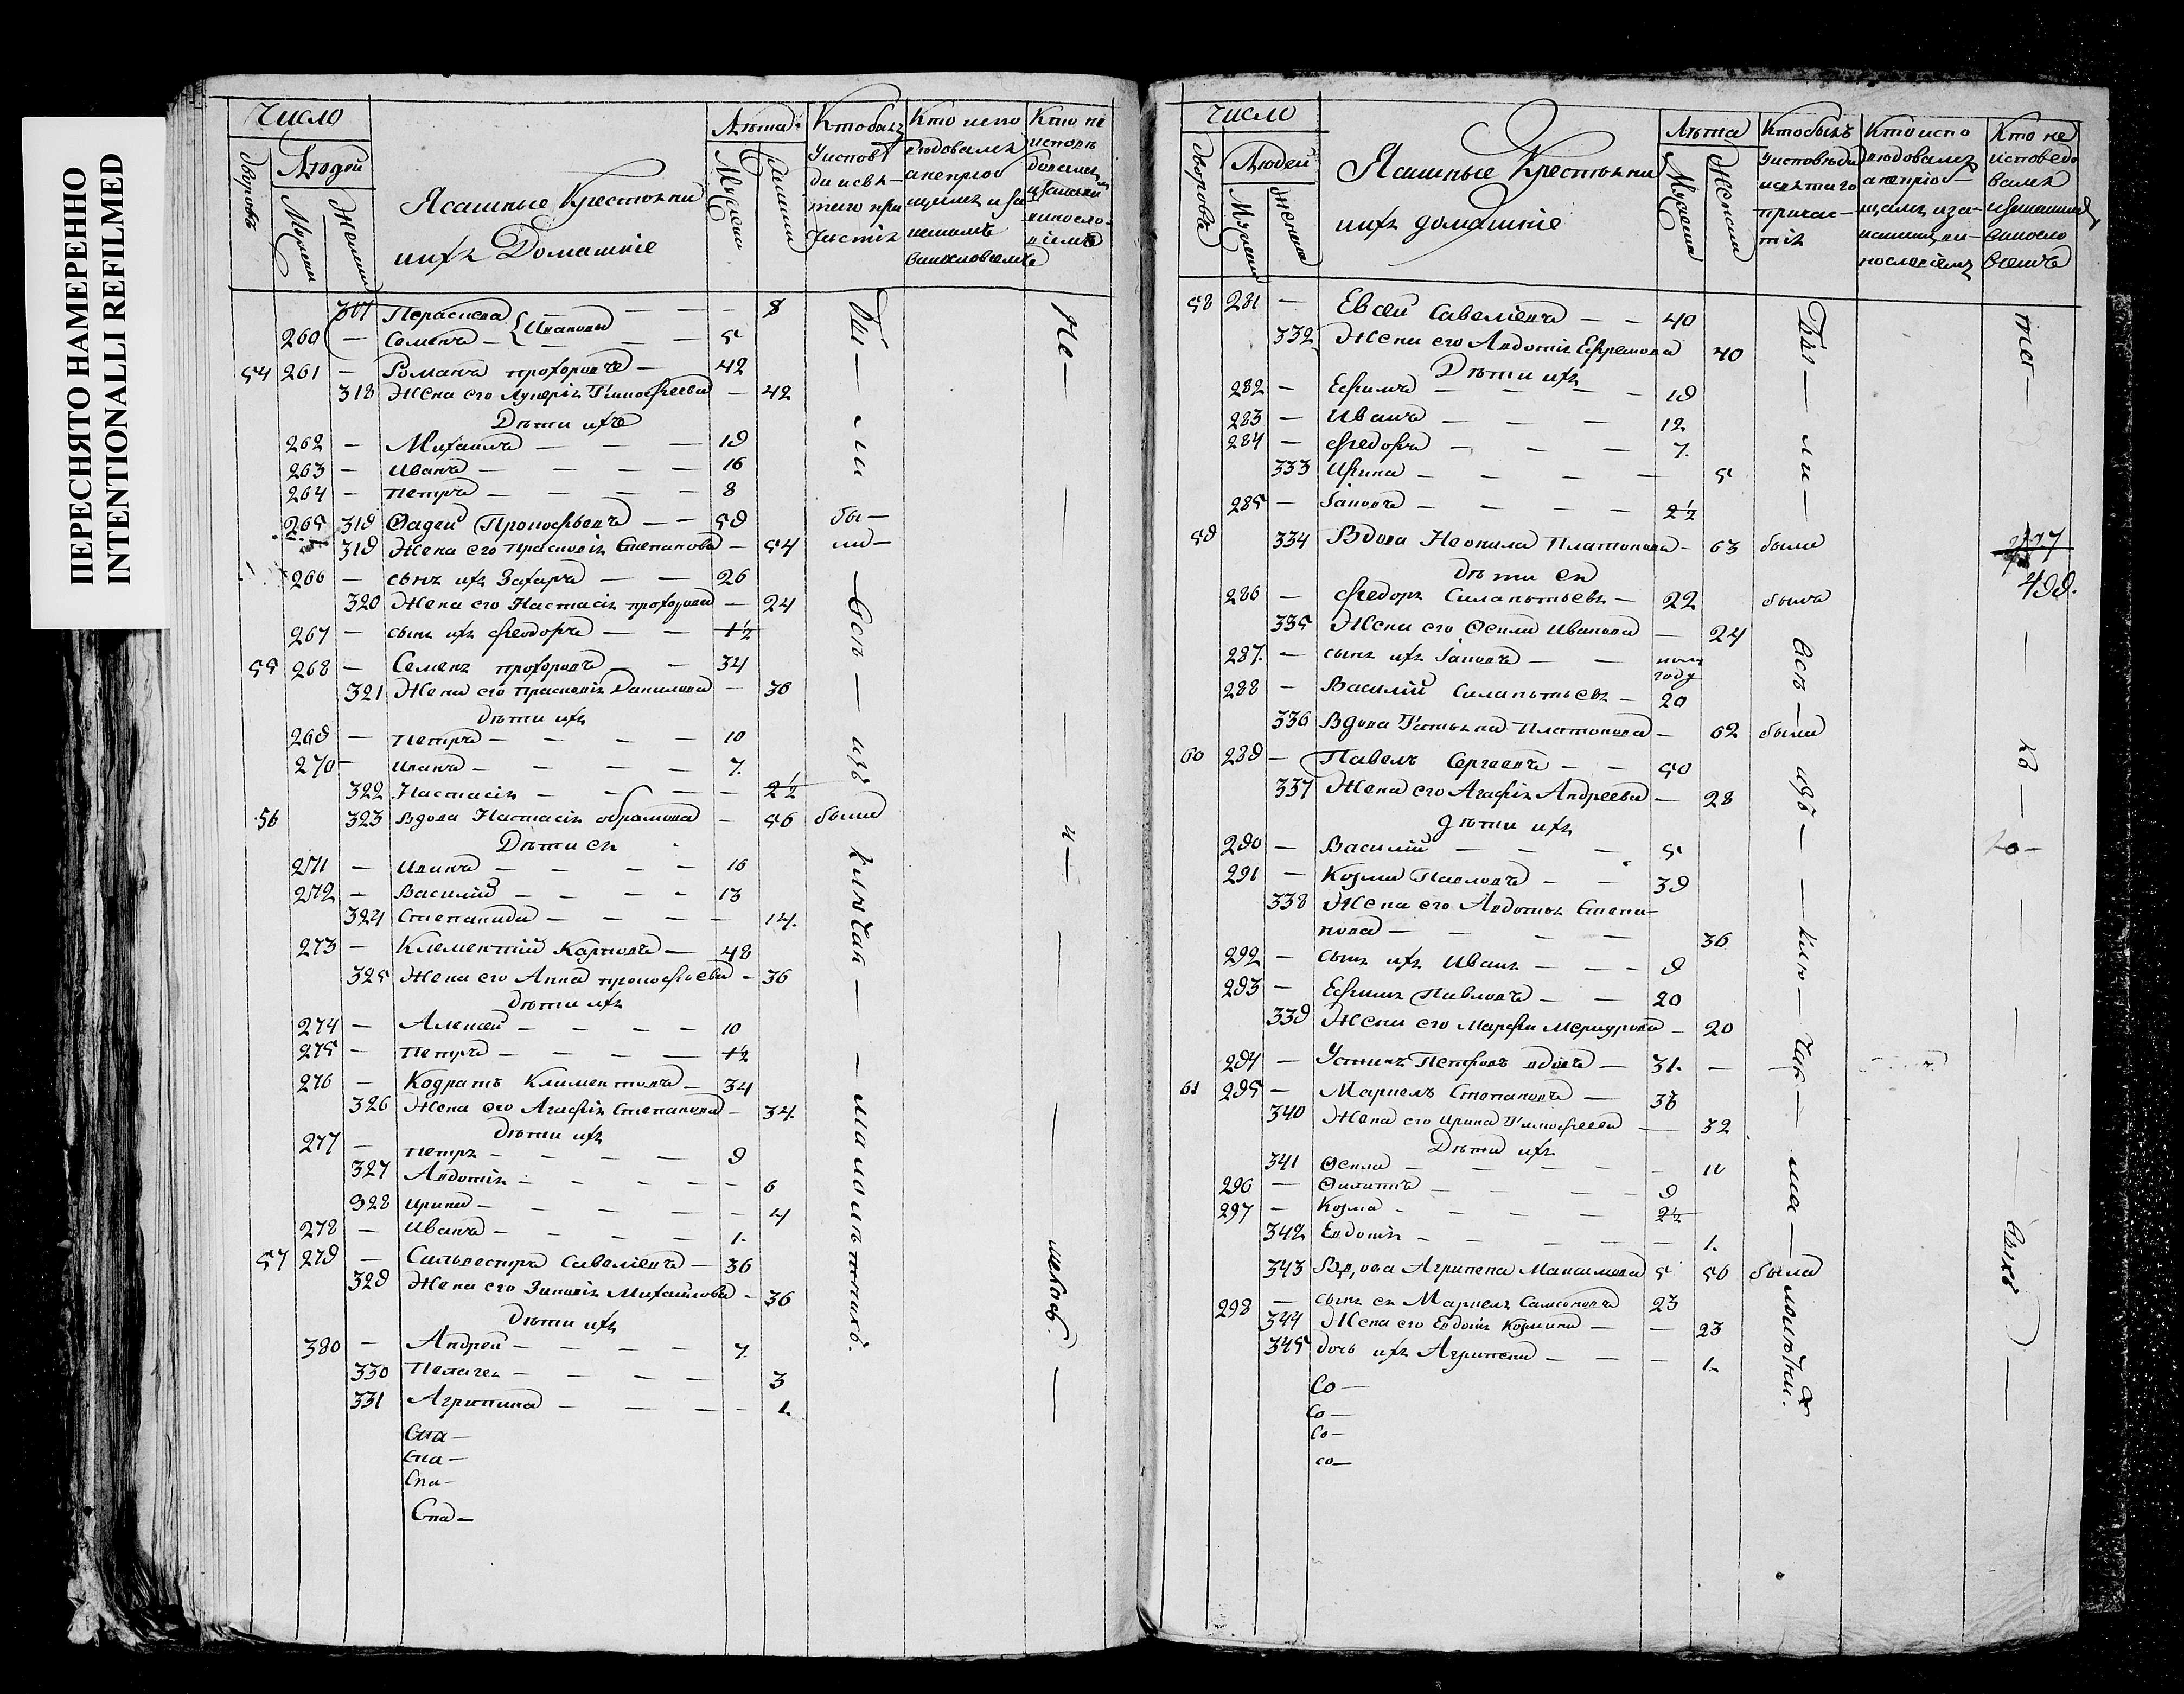 ПЕРЕСНЯТО НАМЕРЕННО
INTENTIONALLI REFILMED
Число
Людей
Мужеска
Женска
Ясашные Крестьяни
ихъ Домашніе
Лѣта
317 Параскева — 8
260 — Семенъ — Ивановы 5
54 261 — Романъ прохоровъ — 42
318 Жена его Лукерія Тимофеева — 42
Дѣти ихъ
262 — Михаилъ — 19
263 — Иванъ — 16
264 — петръ — 8
265 319 Фадей Прокофьевъ — 59 бы—
319 Жена его прасковія Степанова — 54 ли—
266 — сынъ ихъ Захаръ — 26
320 Жена его Настасія прохорова — 24
267 — сынъ ихъ Феодоръ — 1½
55 268 — Семенъ прохоровъ — 34
321 Жена его прасковія Данилова — 30
дѣти ихъ
269 — петръ — 10
270 — Иванъ — 7.
322 Настасія — 2½
56 323 вдова Настасія Абрамова — 56 была
Дѣти ея
271 — Иванъ — 16
272 — Василій — 13
324 Степанида — 14.
273 — Клементій Карповъ — 48
325 Жена его Анна прокофьева — 36
дѣти ихъ
274 — Алексей — 10
275 — петръ — 1½
276 — Кодратъ Климентовъ — 34
326 Жена его Агафія Степанова — 34.
дѣти ихъ
277 — петръ — 9
327 Авдотія — 6
328 Ирина — 4
278 — Иванъ — 1.
57 279 — Сильвестръ Савеліевъ — 36
329 Жена его Зиновія Михайлова — 36
Дѣти ихъ
380 — Андрей — 7.
330 Пелагея — 3
331 Агрипина — 1.
Спа—
Спа—
Спа—
Спа—
Бы — ли — всѣ — изъ ключая — малолѣтныхъ.
Не — и —
число
Людей
Ясашные Крестьяни
ихъ домашніе
Лѣта
Мужеска
Женска
Кто былъ
Кто испо
Кто не
58 281 — Евсей Савеліевъ — 40
332 Жена его Авдотія Ефремова 40
Дѣти ихъ
282 — Ефимъ — 19
283 — Иванъ — 12
284 — Федоръ — 7.
333 Ирина — 5
285 — Іаковъ — 2½
59 334 Вдова Неонила Платонова — 63 были
дѣти ея
286 — Федоръ Силантьевъ — 22 былъ
335 Жена его Фекла Иванова — 24
287. — сынъ ихъ Іаковъ — полу
году
288 — Василий Силантьевъ — 20
336 Вдова Татьяна Платонова — 62 была
60 289 — Павелъ Сергеевъ — 50
337 Жена его Агафія Андреева — 28
дѣти ихъ
290 — Василій — 5
291 — Козма Павловъ — 39
338 Жена его Авдотья Степа—
нова — 36
292 — сынъ ихъ Иванъ — 9
293 — Ефимъ Павловъ — 20
339 Жена его Марфа Меркурова — 20
294 — Устинъ Петровъ вдовъ — 31. —
61 295 — Маркелъ Степановъ — 36
340 Жена его Ирина Тимофеева — 32
Дѣти ихъ
341 Фекла — 11
296 — Филипъ — 9
297 — Козма — 2½
342 Евдокія — 1.
343 Вдова Агрипена Максимова 5 56 была
298 — сынъ ея Маркелъ Самсоновъ 23
344 Жена его Евдокія Козмина — 23
345 дочь ихъ Агрипена — 1.
Со—
Со—
Со—
со—
Бы — ли — всѣ — изъ — клю — чая — ма —
499.